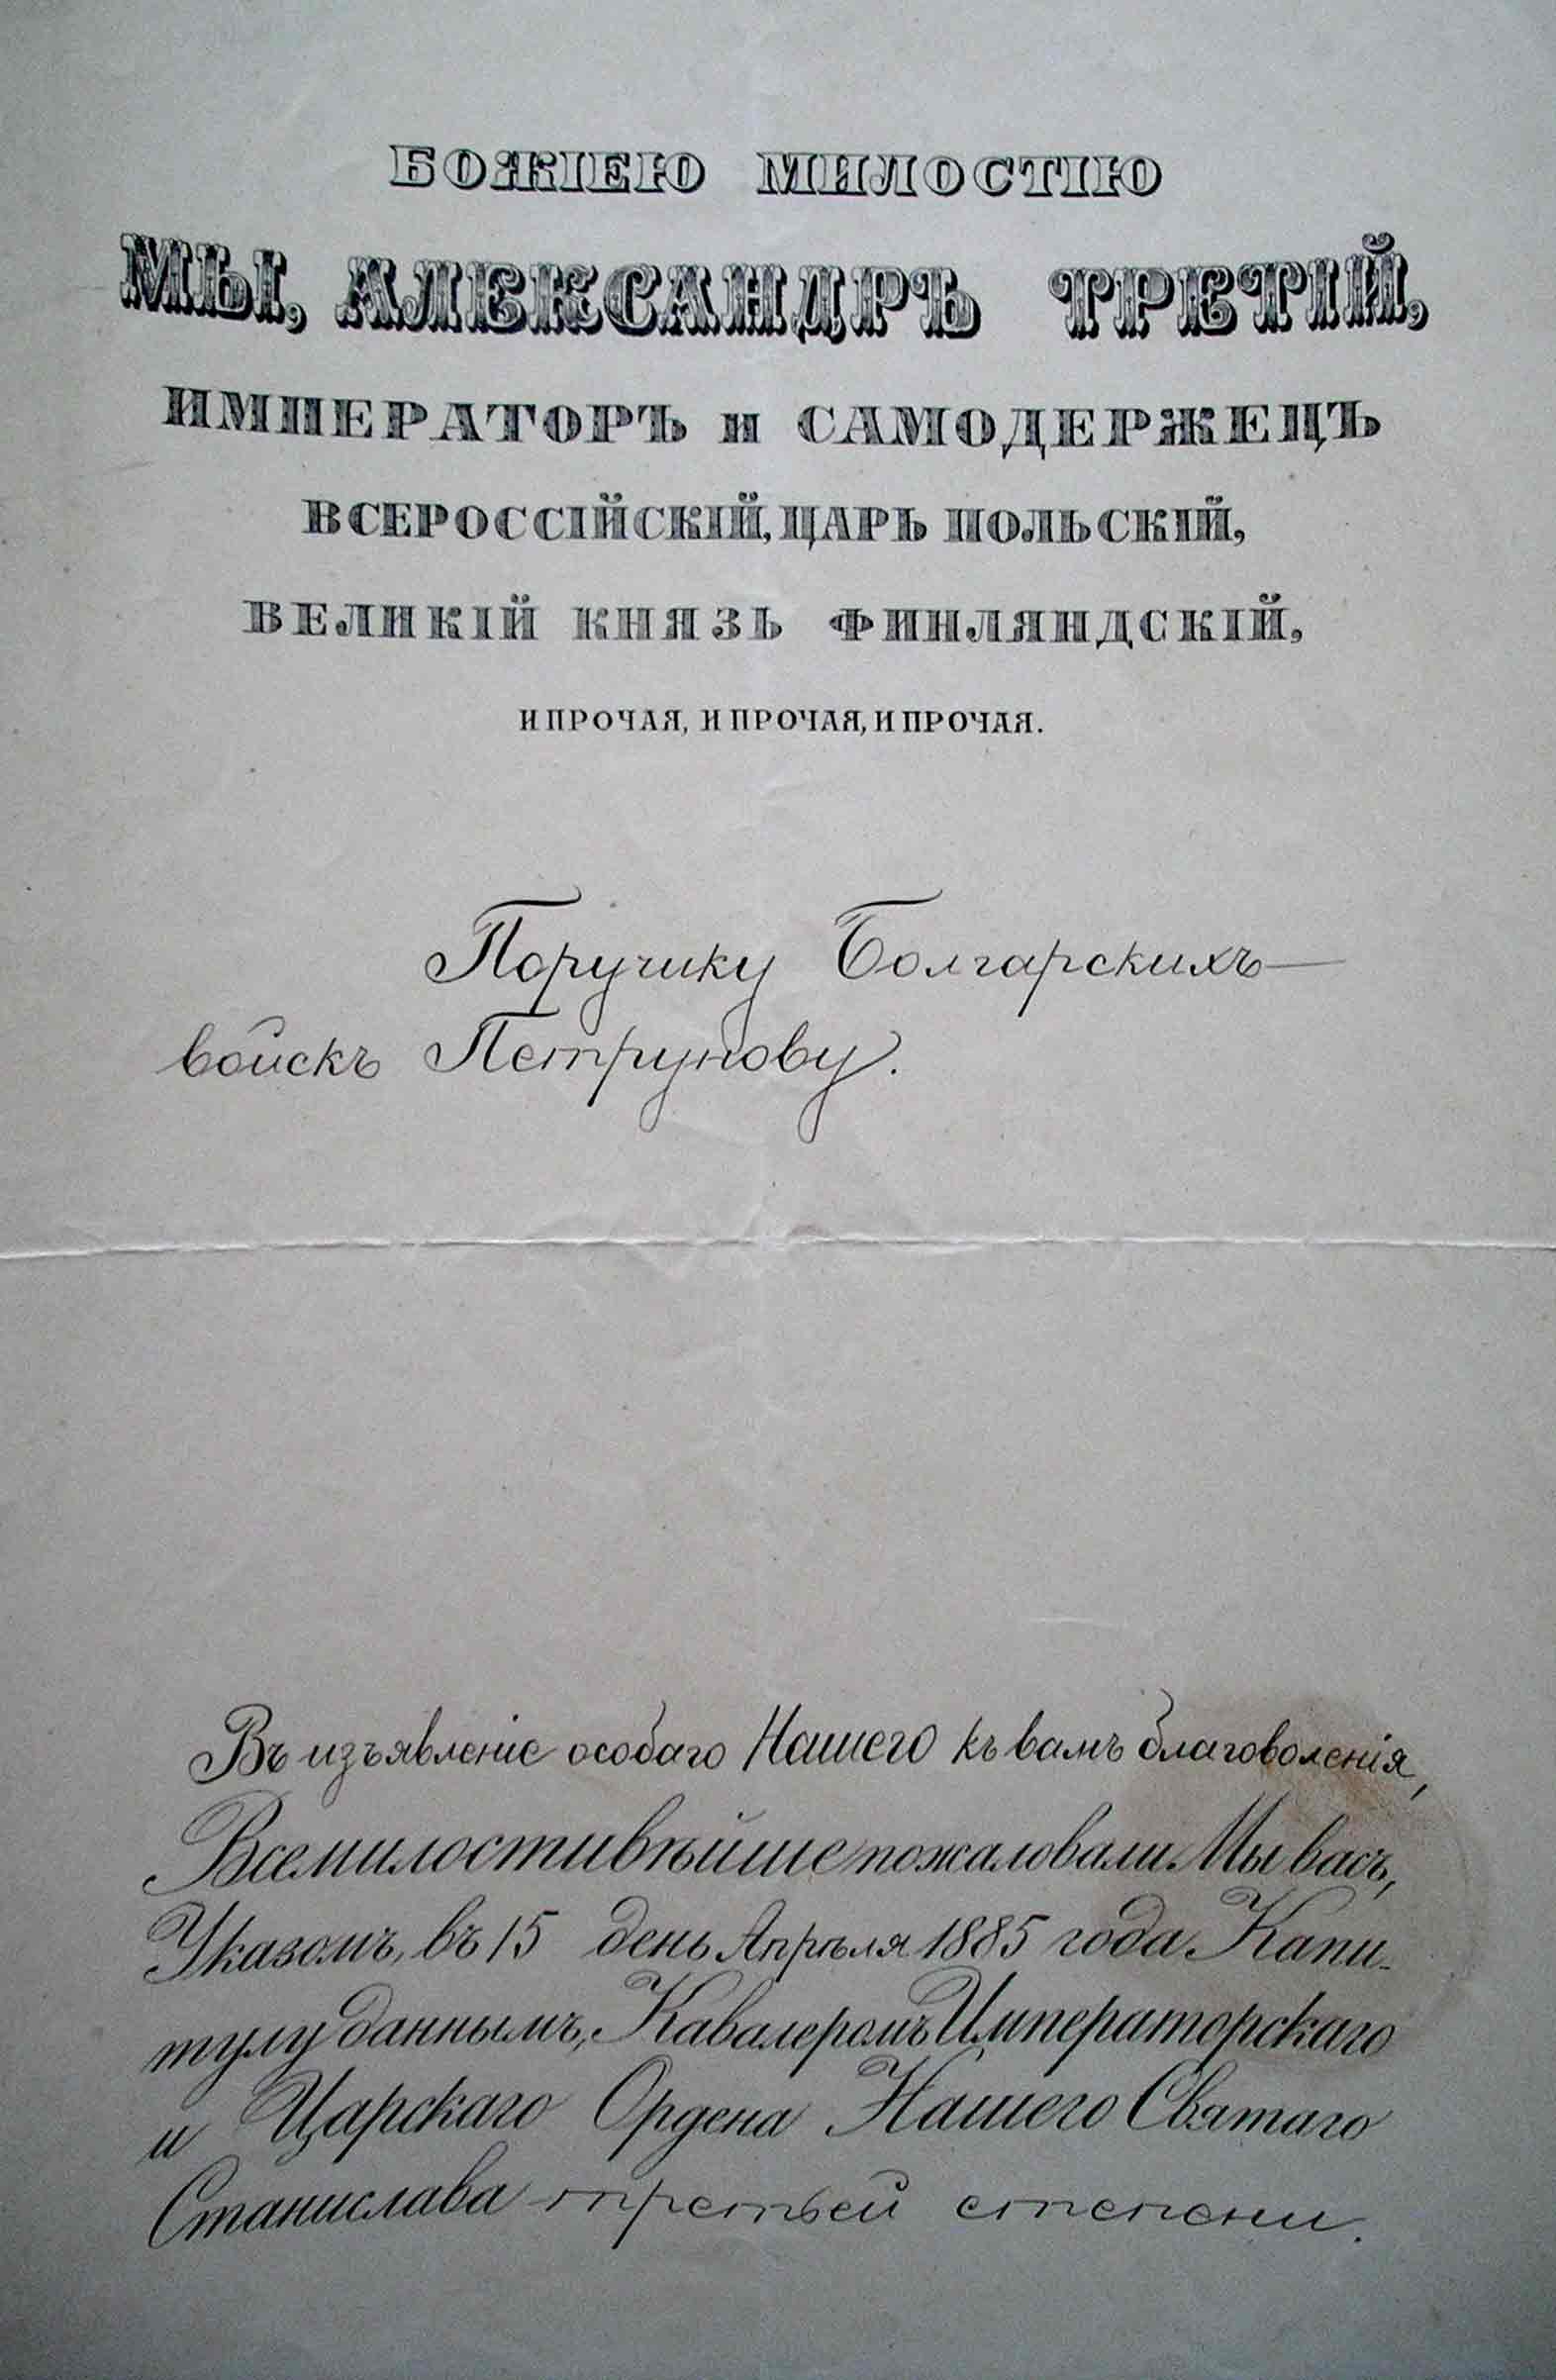 БОЖІЕЮ МИЛОСТІЮ
МЫ, АЛЕКСАНДРЪ ТРЕТІЙ,
ИМПЕРАТОРЪ и САМОДЕРЖЕЦЪ
ВСЕРОССІЙСКІЙ, ЦАРЬ ПОЛЬСКІЙ,
ВЕЛИКІЙ КНЯЗЬ ФИНЛЯНДСКІЙ,
И ПРОЧАЯ, И ПРОЧАЯ, И ПРОЧАЯ.
Поручику Болгарскихъ
войскъ Петрунову.
Въ изъявленіе особаго Нашего къ вамъ благоволенія,
Всемилостивѣйше пожаловали Мы васъ,
Указомъ, въ 15 день Апрѣля 1885 года Капи-
тулу даннымъ, Кавалеромъ Императорскаго
и Царскаго Ордена Нашего Святаго
Станислава третьей степени.